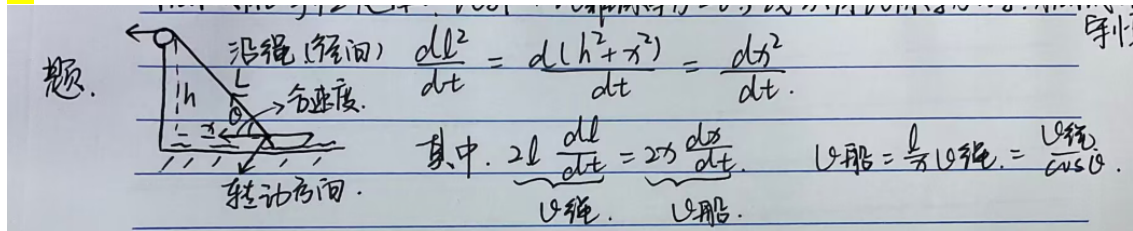 题.
h
x
L
θ
沿绳(径向)
合速度.
转动方向.
dl²/dt = d(h²+x²)/dt = dx²/dt.
其中. 2l dl/dt = 2x dx/dt.
v绳. v船.
v船 = l/x v绳. = v绳/cosθ.